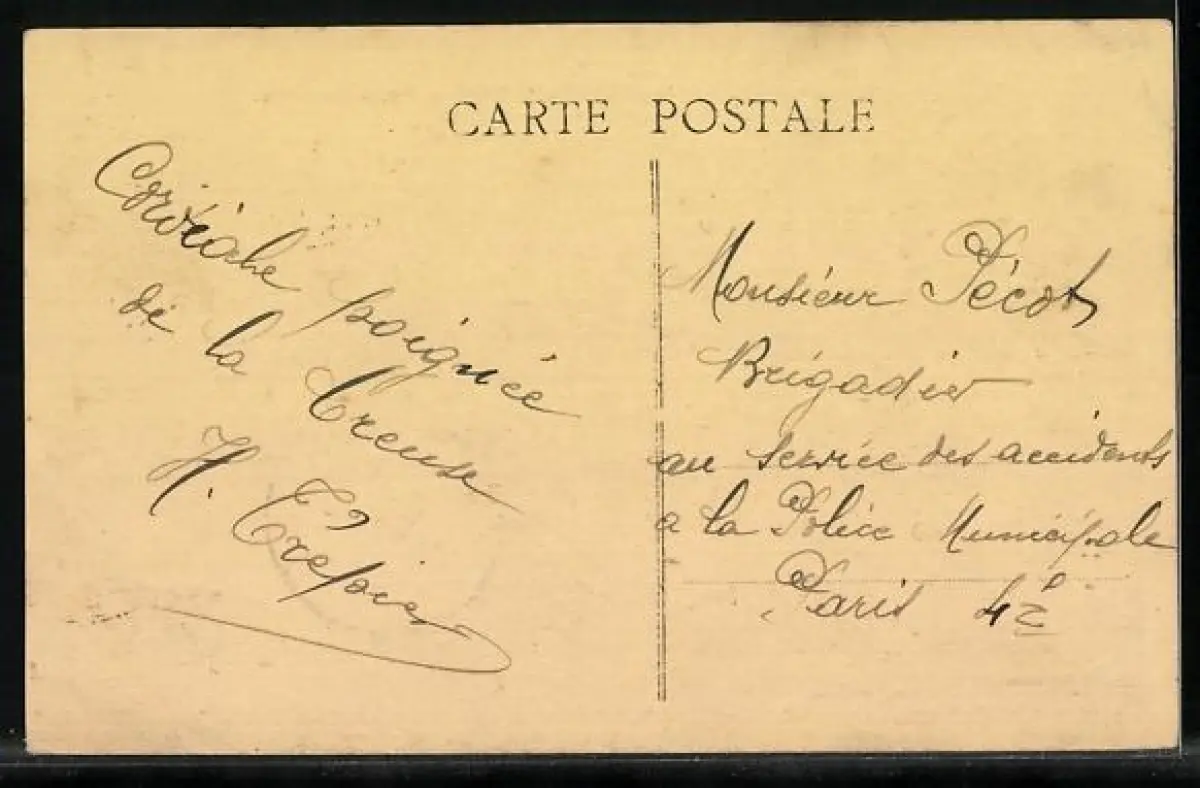 CARTE POSTALE
Cordiale poignée
de la Creuse
H.
Monsieur Pécot
Brigadier
au service des accidents
a la Police Municipale
Paris 4e